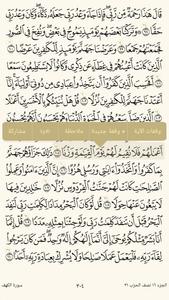 قَالَ هَٰذَا رَحْمَةٌ مِّن رَّبِّي ۖ فَإِذَا جَاءَ وَعْدُ رَبِّي جَعَلَهُ دَكَّاءَ ۖ وَكَانَ وَعْدُ رَبِّي
حَقًّا ٩٨ ۞ وَتَرَكْنَا بَعْضَهُمْ يَوْمَئِذٍ يَمُوجُ فِي بَعْضٍ ۖ وَنُفِخَ فِي الصُّورِ
فَجَمَعْنَاهُمْ جَمْعًا ٩٩ وَعَرَضْنَا جَهَنَّمَ يَوْمَئِذٍ لِّلْكَافِرِينَ عَرْضًا ١٠٠
الَّذِينَ كَانَتْ أَعْيُنُهُمْ فِي غِطَاءٍ عَن ذِكْرِي وَكَانُوا لَا يَسْتَطِيعُونَ سَمْعًا
١٠١ أَفَحَسِبَ الَّذِينَ كَفَرُوا أَن يَتَّخِذُوا عِبَادِي مِن دُونِي أَوْلِيَاءَ ۚ إِنَّا
أَعْتَدْنَا جَهَنَّمَ لِلْكَافِرِينَ نُزُلًا ١٠٢ قُلْ هَلْ نُنَبِّئُكُم بِالْأَخْسَرِينَ
وقفات الآية + وقفة جديدة ملاحظة تلاوة مشاركة
أَعْمَالُهُمْ فَلَا نُقِيمُ لَهُمْ يَوْمَ الْقِيَامَةِ وَزْنًا ١٠٥ ذَٰلِكَ جَزَاؤُهُمْ جَهَنَّمُ
بِمَا كَفَرُوا وَاتَّخَذُوا آيَاتِي وَرُسُلِي هُزُوًا ١٠٦ إِنَّ الَّذِينَ آمَنُوا وَعَمِلُوا
الصَّالِحَاتِ كَانَتْ لَهُمْ جَنَّاتُ الْفِرْدَوْسِ نُزُلًا ١٠٧ خَالِدِينَ فِيهَا
لَا يَبْغُونَ عَنْهَا حِوَلًا ١٠٨ قُل لَّوْ كَانَ الْبَحْرُ مِدَادًا لِّكَلِمَاتِ رَبِّي لَنَفِدَ
الْبَحْرُ قَبْلَ أَن تَنفَدَ كَلِمَاتُ رَبِّي وَلَوْ جِئْنَا بِمِثْلِهِ مَدَدًا ١٠٩ قُلْ إِنَّمَا
أَنَا بَشَرٌ مِّثْلُكُمْ يُوحَىٰ إِلَيَّ أَنَّمَا إِلَٰهُكُمْ إِلَٰهٌ وَاحِدٌ ۖ فَمَن كَانَ يَرْجُو لِقَاءَ
رَبِّهِ فَلْيَعْمَلْ عَمَلًا صَالِحًا وَلَا يُشْرِكْ بِعِبَادَةِ رَبِّهِ أَحَدًا ١١٠
الجزء ١٦ نصف الحزب ٣١ ٣٠٤ سورة الكهف